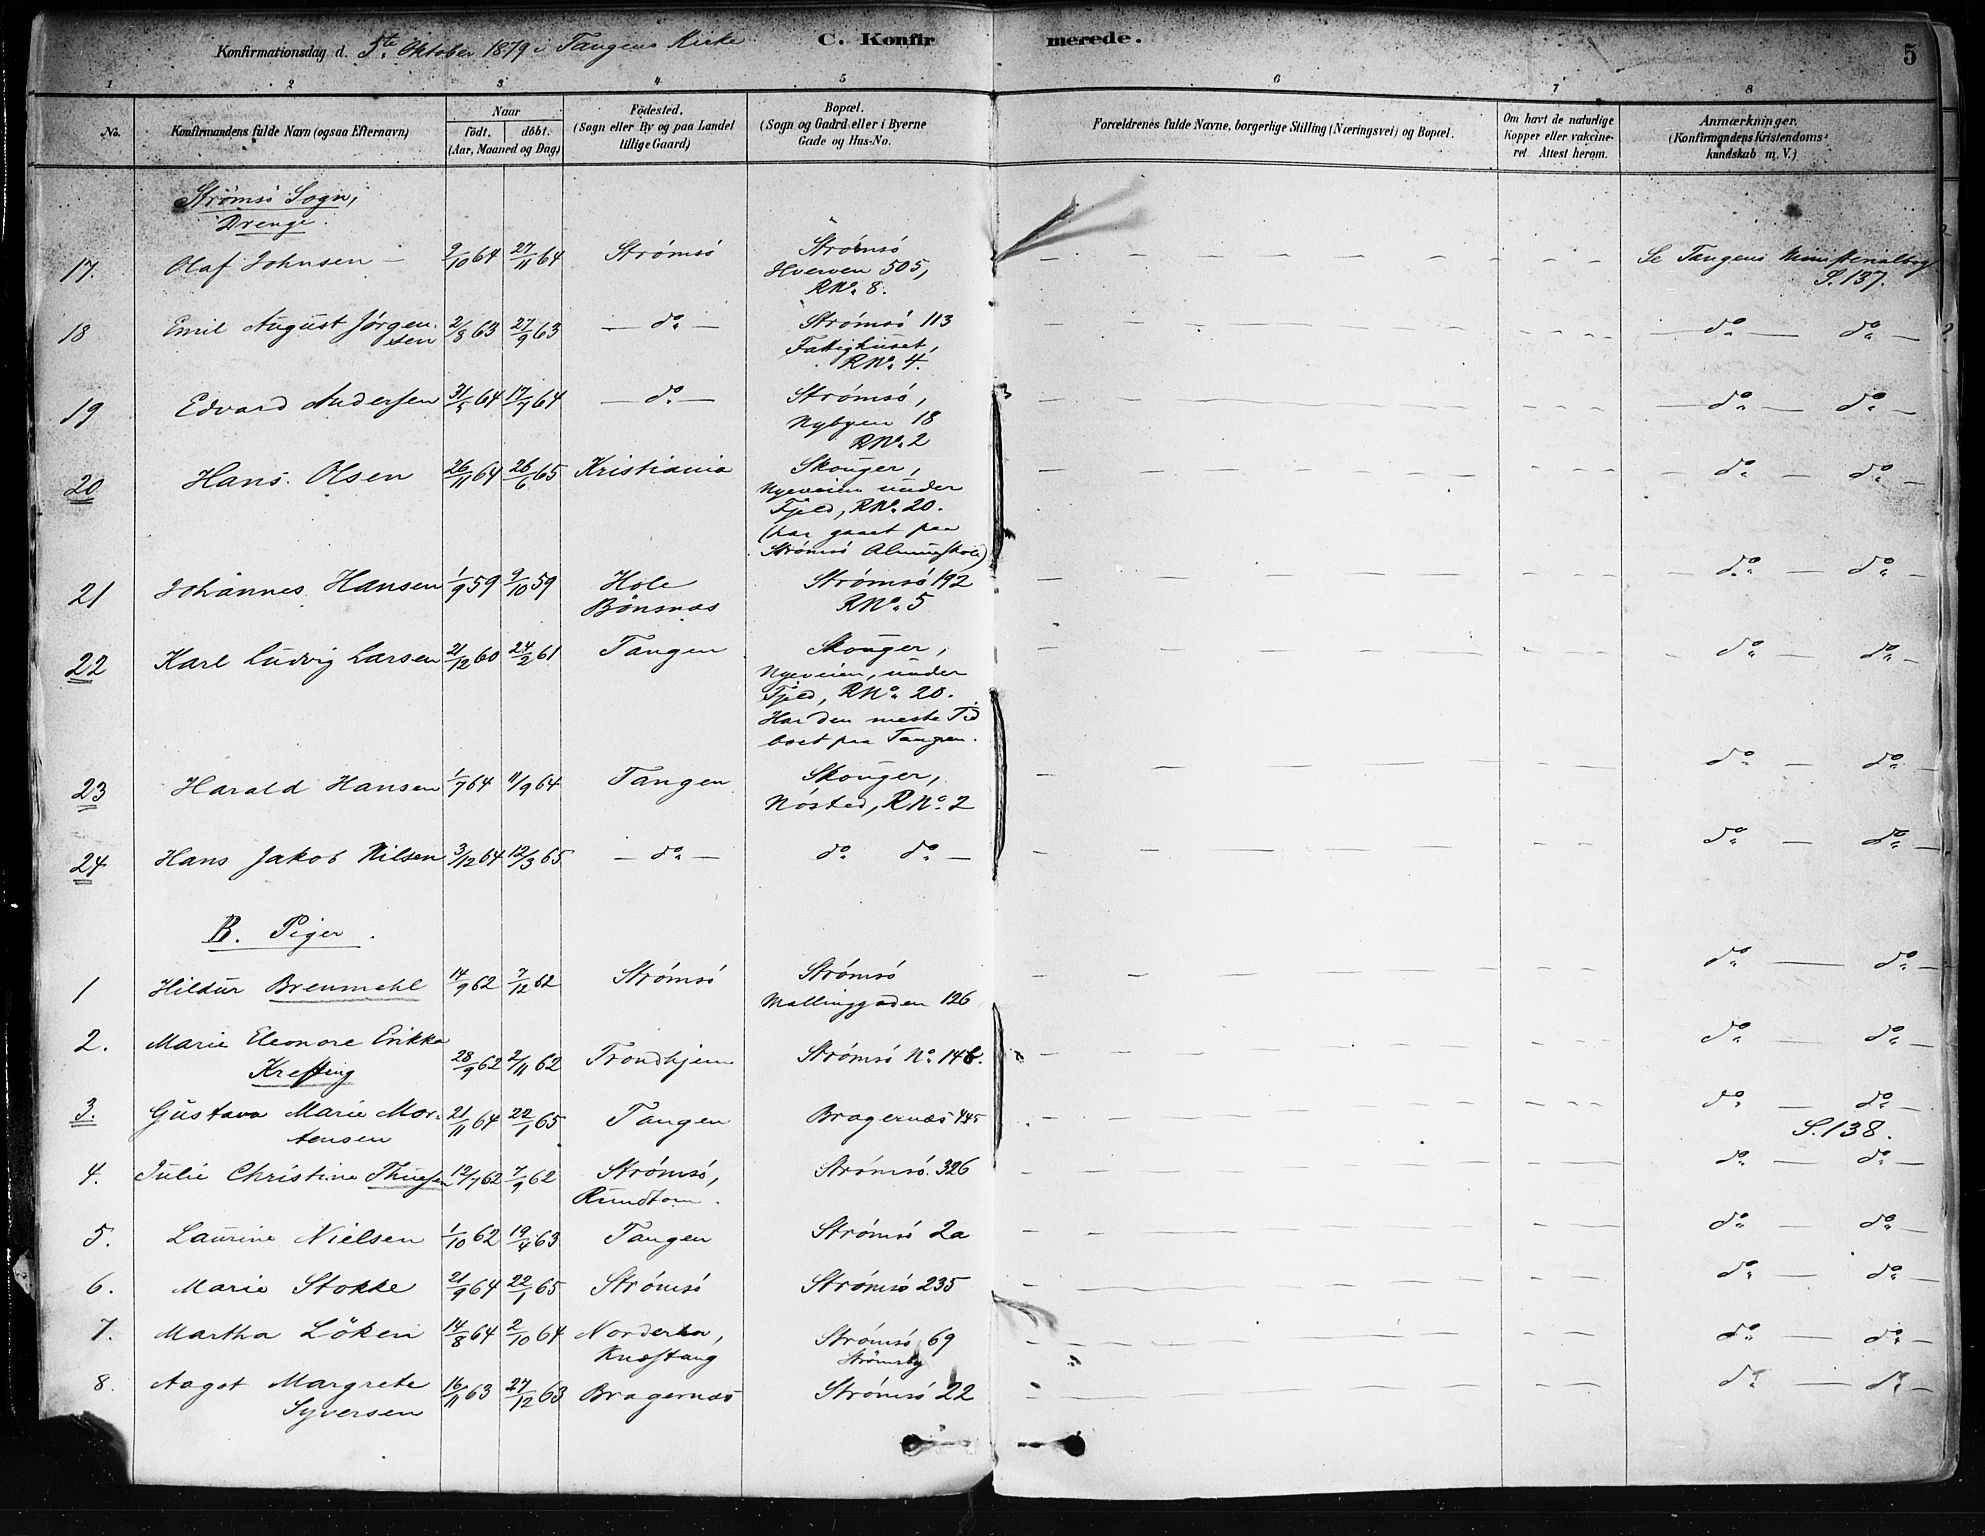 Konfirmationsdag d. 5te Oktober 1879 i Tangens Kirke C. Konfirmerede. 5
1 2 3 4 5 6 7 8
No. Konfirmandens fulde Navn (ogsaa Efternavn) Naar født. døbt. (Aar, Maaned og Dag) Födested. (Sogn eller By og paa Landet lillige Gaard) Bopæl. (Sogn og Gaard eller i Byerne Gade og Hus-No. Forældrenes fulde Navne, borgerlige Stilling (Næringsvei) og Bopæl. Om havt de naturlige Kopper eller vakcineret. Attest herom. Anmærkninger. (Konfirmandens Kristendomskundskab m. V.)
Strømsö Sogn,
Drenge.
17. Olaf Johnsen — 9/10 64 27/11 64 Strømsö Strømsö — Se Tangens Ministerialbog
Hverven 505, S. 137.
RNo. 8.
18 Emil August Jørgen- 2/8 63 27/9 63 — do — Strømsö 113 — do — do —
sen Fattighuset,
RNo. 4.
19 Edvard Andersen 31/5 64 17/7 64 — do — Strømsö, — do — do —
Nybyen 18
RNo. 2
20 Hans Olsen 26/11 64 26/6 65 Kristiania Skouger, do — do —
Nyeveien under
Fjeld, RNo. 20.
(har gaaet paa
Strømsö Almueskole)
21 Johannes Hansen 1/9 59 9/10 59 Hole Strømsö 192 — do — do —
Bönsnæs RNo. 5
22 Karl Ludvig Larsen 21/12 60 24/2 61 Tangen Skouger, — do — do —
Nyeveien, under
Fjeld, RNo. 20.
Har den meste Tid
boet paa Tangen.
23 Harald Hansen 1/7 64 11/9 64 Tangen Skouger, do — do —
Nösted, RNo. 2
24 Hans Jakob Nilsen 3/12 64 12/3 65 — do — do do — do — do —
B. Piger.
1 Hildur Brenmehl 14/9 62 7/12 62 Strømsö Strømsö do — do —
Mallinggaden 126
2. Marie Eleonore Erikka do — do —
Krefting 28/9 62 2/11 62 Trondhjem Strømsö No. 146.
3. Gustava Marie Mor- 21/11 64 22/1 65 Tangen Bragernæs 445 do — do —
tensen S. 138.
4. Julie Christine Thuesen 12/7 62 7/9 62 Strømsö, Strømsö 326 do — do —
Rundtom.
5. Laurine Nielsen 1/10 62 19/4 63 Tangen Strømsö 2a do — do —
6. Marie Stokke 21/9 64 22/1 65 Strömsö Strømsö 235 do — do —
7. Martha Löken 14/8 64 2/10 64 Norderhov, Strømsö 69 do — do —
Knæstang Strømsby
8. Aagot Margrete 16/11 63 27/12 63 Bragernæs Strømsö 22 do — do —
Syversen